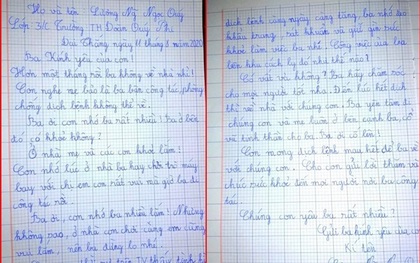 Họ và tên Dương Mỹ Ngọc Quý
Lớp 3/C Trường TH Đoàn Quý Phi
Đại Thắng, ngày 11 tháng 8 năm 2020
Ba Kính yêu của con!
Hơn một tháng rồi ba không về nhà nhỉ!
Con nghe mẹ bảo là ba bận công tác, phòng
chống dịch bệnh không thể về.
Ba ơi con nhớ ba rất nhiều! Ba ở bên
đó có khoẻ không?
Ở nhà mẹ và các con khoẻ lắm!
Con nhớ lúc ở nhà ba hay chơi trò máy
bay với chị em con rất vui mà giờ ba đi
công tác rồi.
Ba ơi, con nhớ ba nhiều lắm! Nhưng
không sao, ở nhà con chơi cùng em cũng
vui lắm, nên ba đừng lo nhé.
TV thấy tình hình
dịch bệnh càng ngày càng tăng, ba nhớ đeo
khẩu trang, sát khuẩn và giữ gìn sức
khoẻ làm việc ba nhé. Công việc của ba
bên khu cách ly đó như thế nào?
Có vất vả không? Ba hãy chăm sóc
cho mọi người tốt nha. Đến lúc hết dịch
thì về nhà với chúng con. Ba yên tâm đi
chúng con và mẹ luôn ở bên cạnh ba, cổ
vũ tinh thần cho ba. Ba ơi cố lên!
Con mong dịch bệnh mau hết để ba về
với chúng con. Cho con gửi lời thăm và
chúc sức khoẻ đến mọi người nơi ba công
tác.
Chúng con yêu ba rất nhiều!
Gửi ba kính yêu của con
Kí tên